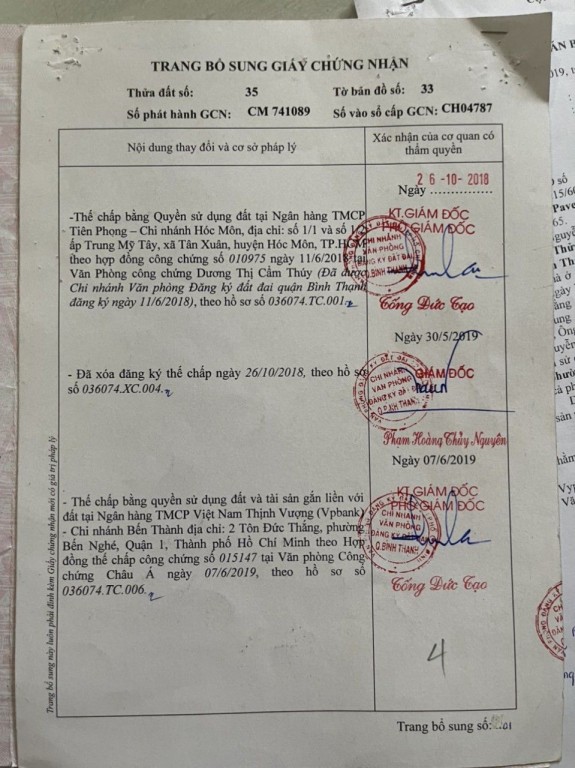 TRANG BỔ SUNG GIẤY CHỨNG NHẬN
Thửa đất số: 35 Tờ bản đồ số: 33
Số phát hành GCN: CM 741089 Số vào sổ cấp GCN: CH04787
Nội dung thay đổi và cơ sở pháp lý
Xác nhận của cơ quan có
thẩm quyền
-Thế chấp bằng Quyền sử dụng đất tại Ngân hàng TMCP
Tiên Phong – Chi nhánh Hóc Môn, địa chỉ: số 1/1 và số 1/
ấp Trung Mỹ Tây, xã Tân Xuân, huyện Hóc Môn, TP.HCM
theo hợp đồng công chứng số 010975 ngày 11/6/2018 tại
Văn Phòng công chứng Dương Thị Cẩm Thúy (Đã được
Chi nhánh Văn phòng Đăng ký đất đai quận Bình Thạnh
đăng ký ngày 11/6/2018), theo hồ sơ số 036074.TC.001.
26-10-2018
Ngày
KT.GIÁM ĐỐC
PHÓ GIÁM ĐỐC
CHI NHÁNH
VĂN PHÒNG
ĐĂNG KÝ ĐẤT ĐAI
Q.BÌNH THẠNH
Tống Đức Tạo
- Đã xóa đăng ký thế chấp ngày 26/10/2018, theo hồ sơ
số 036074.XC.004.
Ngày 30/5/2019
GIÁM ĐỐC
CHI NHÁNH
VĂN PHÒNG
ĐĂNG KÝ ĐẤT ĐAI
Q.BÌNH THẠNH
Phạm Hoàng Thủy Nguyên
- Thế chấp bằng quyền sử dụng đất và tài sản gắn liền với
đất tại Ngân hàng TMCP Việt Nam Thịnh Vượng (Vpbank)
- Chi nhánh Bến Thành địa chỉ: 2 Tôn Đức Thắng, phường
Bến Nghé, Quận 1, Thành phố Hồ Chí Minh theo Hợp
đồng thế chấp công chứng số 015147 tại Văn phòng Công
chứng Châu Á ngày 07/6/2019, theo hồ sơ số
036074.TC.006.
Ngày 07/6/2019
KT.GIÁM ĐỐC
PHÓ GIÁM ĐỐC
CHI NHÁNH
VĂN PHÒNG
ĐĂNG KÝ ĐẤT ĐAI
Q.BÌNH THẠNH
Tống Đức Tạo
4
Trang bổ sung này luôn phải đính kèm Giấy chứng nhận mới có giá trị pháp lý
Trang bổ sung số: 01